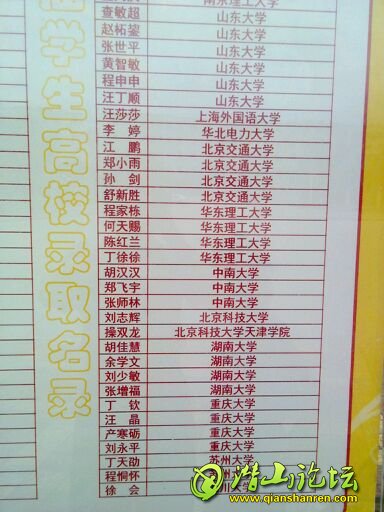 留学生高校录取名录
南京理工大学
查敏超 山东大学
赵柘鋆 山东大学
张世平 山东大学
黄智敏 山东大学
程申申 山东大学
汪丁顺 山东大学
汪莎莎 上海外国语大学
李 婷 华北电力大学
江 鹏 北京交通大学
郑小雨 北京交通大学
孙 剑 北京交通大学
舒新胜 北京交通大学
程家栋 华东理工大学
何天赐 华东理工大学
陈红兰 华东理工大学
丁徐徐 华东理工大学
胡汉汉 中南大学
郑飞宇 中南大学
张师林 中南大学
刘志辉 北京科技大学
操双龙 北京科技大学天津学院
胡佳慧 湖南大学
余学文 湖南大学
刘少敏 湖南大学
张增福 湖南大学
丁 钦 重庆大学
汪 晶 重庆大学
产寒砺 重庆大学
刘永平 重庆大学
丁天劭 苏州大学
程恫怀
徐 会
潜山论坛
www.qianshanren.com